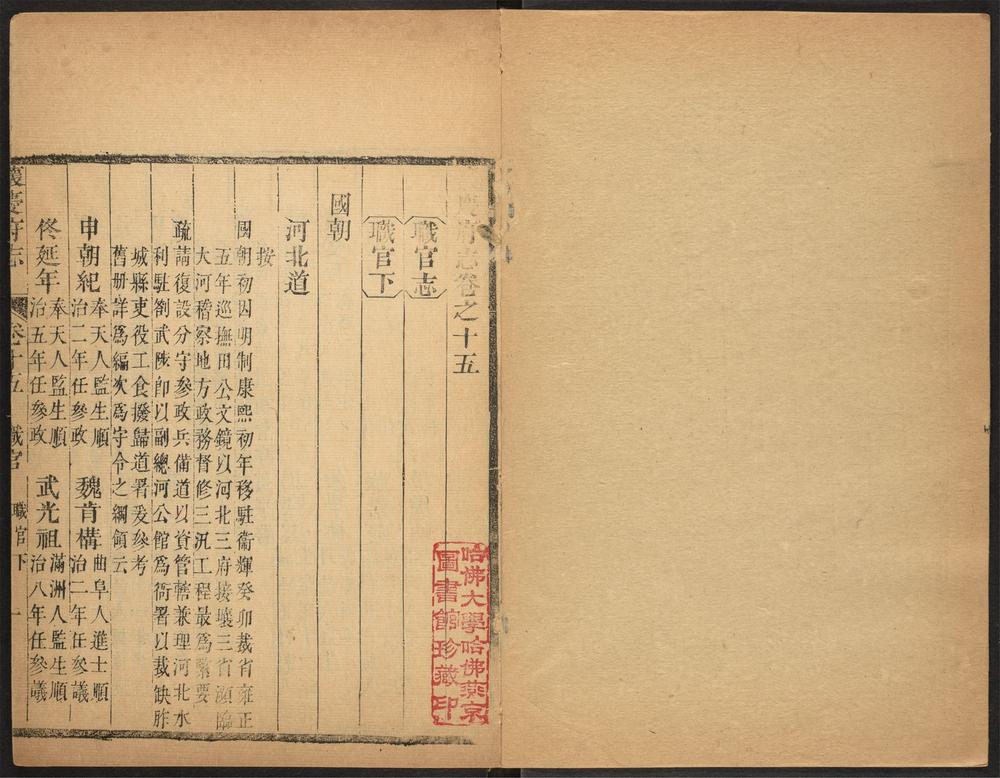 府志卷之十五
職官志
職官下
國朝
河北道
按
國朝初因明制康熙初年移駐衞輝癸卯裁省雍正
五年巡撫田公文鏡以河北三府接壤三省瀕臨
大河稽察地方政務督修三汛工程最爲緊要
疏請復設分守參政兵備道以資管轄兼理河北水
利駐劄武陟卽以副總河公館爲衙署以裁缺胙
城縣吏役工食撥歸道署爰參考
舊册詳爲編次爲守令之綱領云
申朝紀
奉天人監生順
治二年任參政
魏肯構
曲阜人進士順
治二年任參議
佟延年
奉天人監生順
治五年任參政
武光祖
滿洲人監生順
治八年任參議
慶府志
卷十五
職官
職官下
一
哈佛大學哈佛燕京
圖書館珍藏印